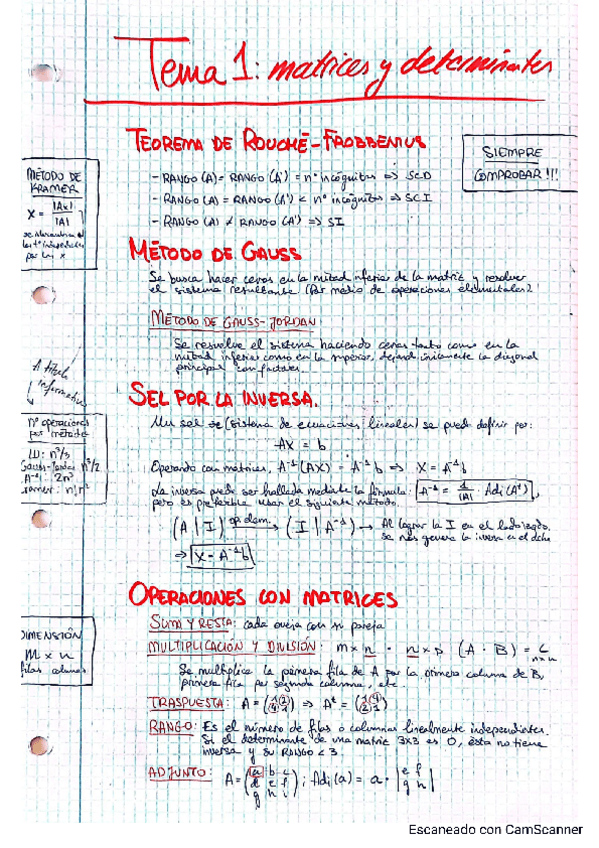 Tema 1: matrices y determinantes
TEOREMA DE ROUCHÉ-FROBBENIUS
SIEMPRE
COMPROBAR!!!
- RANGO (A) = RANGO (A') = nº incógnitas => SCD
- RANGO (A) = RANGO (A') < nº incógnitas => SCI
- RANGO (A) ≠ RANGO (A') => SI
MÉTODO DE
KRAMER
X = |Ax| / |A|
por las x
MÉTODO DE GAUSS
Se busca hacer ceros en la mitad inferior de la matriz y resolver
el sistema resultante (Por medio de operaciones elementales)
MÉTODO DE GAUSS-JORDAN
Se resuelve el sistema haciendo ceros tanto como en la
mitad inferior como en la superior, dejando únicamente la diagonal
principal con factores.
A título
informativo
nº operaciones
por método
LU: n³/3
Gauss-Jordan n³/2
A⁻¹: 2n³
Kramer: n! n²
SEL POR LA INVERSA.
Un sel se (sistema de ecuaciones lineales) se puede definir por:
AX = b
Operando con matrices, A⁻¹(AX) = A⁻¹b => X = A⁻¹b
La inversa puede ser hallada mediante la fórmula: A⁻¹ = 1/|A| · Adj(Aᵗ),
pero es preferible usar el siguiente método.
(A | I) op elem. → (I | A⁻¹) → Al lograr la I en el lado izqdo,
se nos genera la inversa en el dcho
=> X = A⁻¹b
OPERACIONES CON MATRICES
SUMA Y RESTA: cada oveja con su pareja
DIMENSIÓN
m x n
filas columnas
MULTIPLICACIÓN Y DIVISIÓN: m x n · n x p (A · B) = C
Se multiplica la primera fila de A por la primera columna de B,
primera fila por segunda columna, etc.
TRASPUESTA:
RANGO: Es el número de filas o columnas linealmente independientes.
Si el determinante de una matriz 3x3 es 0, ésta no tiene
inversa y su RANGO < 3
ADJUNTO: A = (a b c d e f g h i); Adj(a) = a · |e f g h|
Escaneado con CamScanner